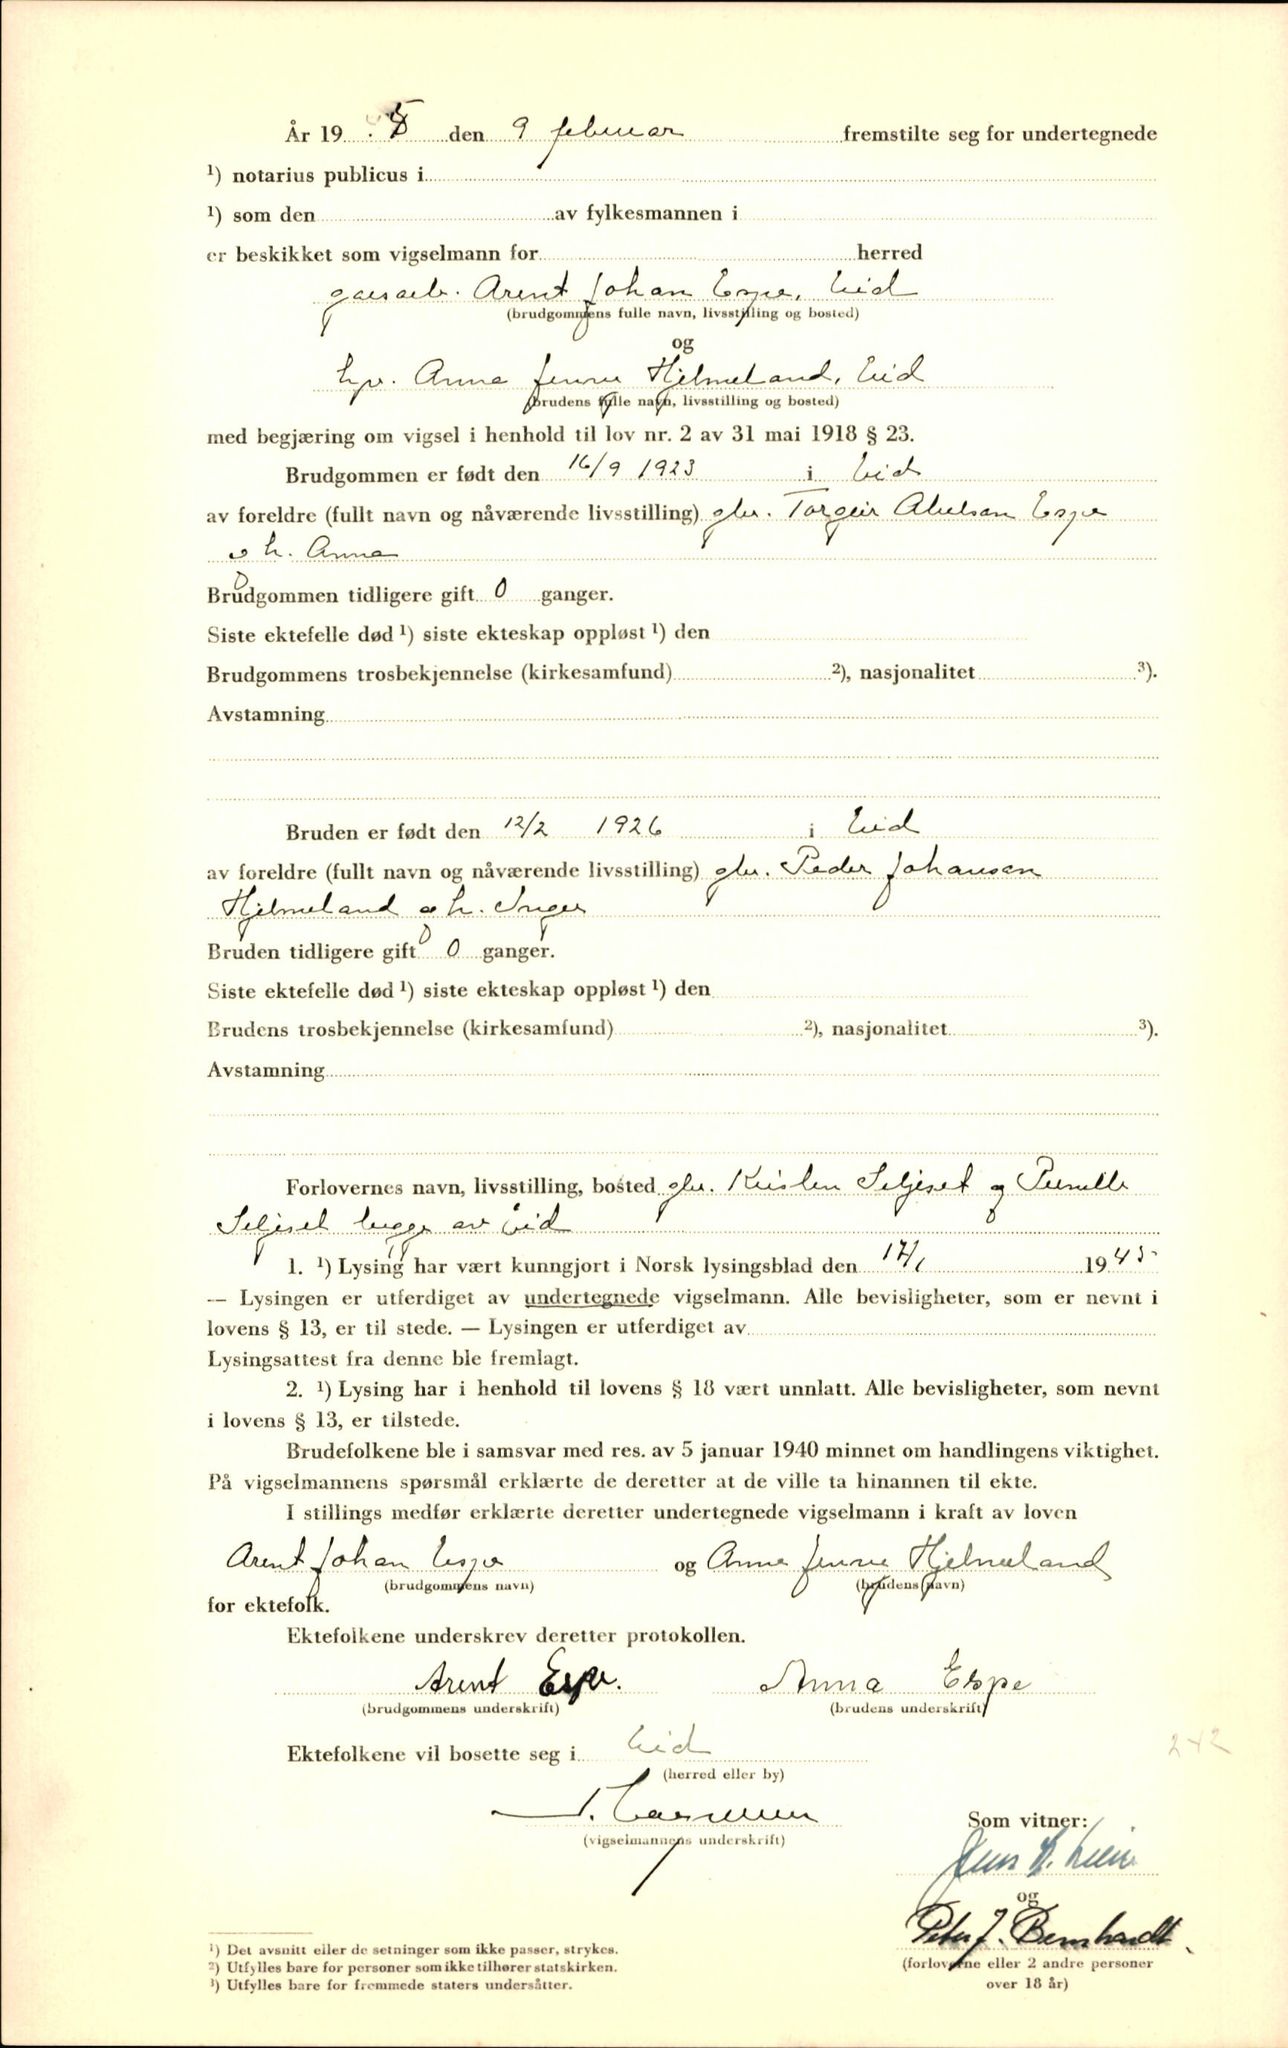 År 19 45 den 9 februar fremstilte seg for undertegnede
¹) notarius publicus i
¹) som den av fylkesmannen i
er beskikket som vigselmann for herred
Arent Johan Espe, Eid
(brudgommens fulle navn, livsstilling og bosted)
og
Anna Jenne Hjelmeland, Eid
(brudens fulle navn, livsstilling og bosted)
med begjæring om vigsel i henhold til lov nr. 2 av 31 mai 1918 § 23.
Brudgommen er født den 16/9 1923 i Eid
av foreldre (fullt navn og nåværende livsstilling) gbr. Torgeir Abelsen Espe
o h. Anna
Brudgommen tidligere gift 0 ganger.
Siste ektefelle død ¹) siste ekteskap oppløst ¹) den
Brudgommens trosbekjennelse (kirkesamfund) ²), nasjonalitet ³).
Avstamning
Bruden er født den 12/2 1926 i Eid
av foreldre (fullt navn og nåværende livsstilling) gbr. Peder Johansen
Hjelmeland o h. Inger
Bruden tidligere gift 0 ganger.
Siste ektefelle død ¹) siste ekteskap oppløst ¹) den
Brudens trosbekjennelse (kirkesamfund) ²), nasjonalitet ³).
Avstamning
Forlovernes navn, livsstilling, bosted gbr. Kristen Seljeset og Pernille
Seljeset begge av Eid
1. ¹) Lysing har vært kunngjort i Norsk lysingsblad den 17/1 1945
— Lysingen er utferdiget av undertegnede vigselmann. Alle bevisligheter, som er nevnt i
lovens § 13, er til stede. — Lysingen er utferdiget av
Lysingsattest fra denne ble fremlagt.
2. ¹) Lysing har i henhold til lovens § 18 vært unnlatt. Alle bevisligheter, som nevnt
i lovens § 13, er tilstede.
Brudefolkene ble i samsvar med res. av 5 januar 1940 minnet om handlingens viktighet.
På vigselmannens spørsmål erklærte de deretter at de ville ta hinannen til ekte.
I stillings medfør erklærte deretter undertegnede vigselmann i kraft av loven
Arent Johan Espe og Anna Jenne Hjelmeland
(brudgommens navn) (brudens navn)
for ektefolk.
Ektefolkene underskrev deretter protokollen.
Arent Espe. Anna Espe
(brudgommens underskrift) (brudens underskrift)
Ektefolkene vil bosette seg i Eid
242
(herred eller by)
(vigselmannens underskrift)
Som vitner:
og
Peter J. Bernhardt.
(forloverne eller 2 andre personer
over 18 år)
¹) Det avsnitt eller de setninger som ikke passer, strykes.
²) Utfylles bare for personer som ikke tilhører statskirken.
³) Utfylles bare for fremmede staters undersåtter.